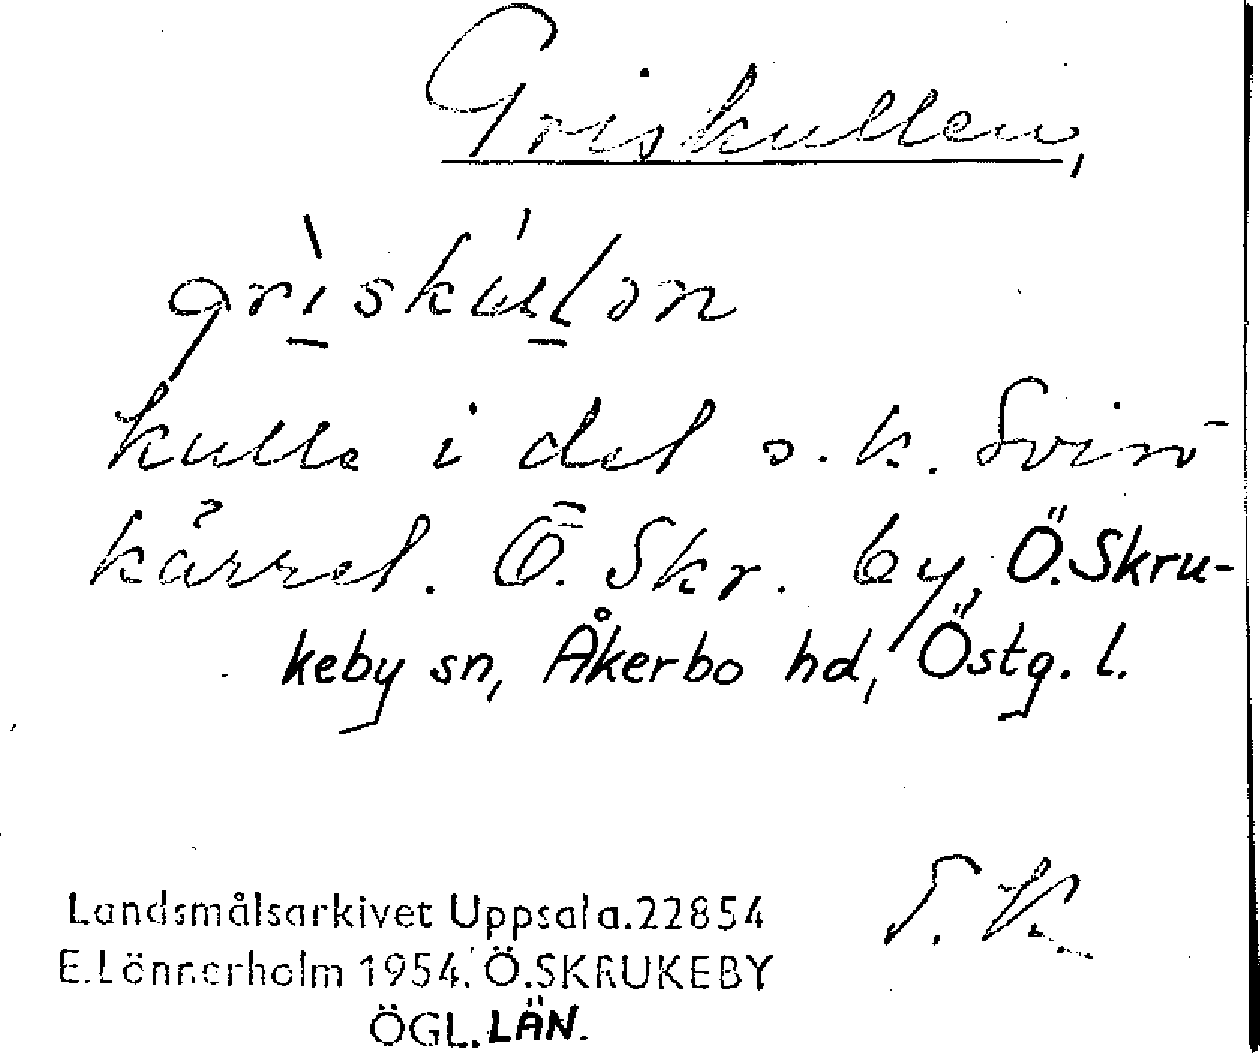 Griskullen,
grìskúlən
kulle i det s.k. Svin-
kärret. Ö. Skr. by, Ö.Skru-
keby sn, Åkerbo hd, Östg. l.
Landsmålsarkivet Uppsala.22854
E.Lönnerholm 1954. Ö.SKRUKEBY
ÖGL. LÄN.